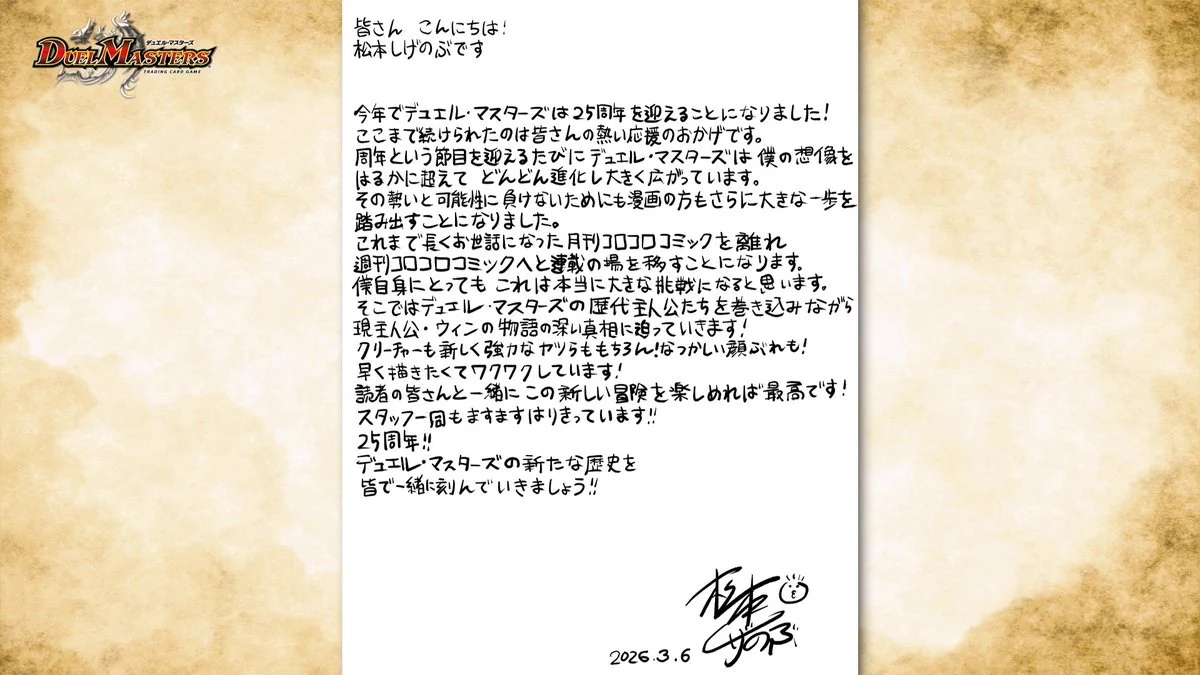 デュエル・マスターズ
DUEL MASTERS
TRADING CARD GAME
皆さん こんにちは!
松本しげのぶです
今年でデュエル・マスターズは25周年を迎えることになりました!
ここまで続けられたのは皆さんの熱い応援のおかげです。
周年という節目を迎えるたびにデュエル・マスターズは僕の想像を
はるかに超えて どんどん進化し大きく広がっています。
その勢いと可能性に負けないためにも漫画の方もさらに大きな一歩を
踏み出すことになりました。
これまで長くお世話になった月刊コロコロコミックを離れ
週刊コロコロコミックへと連載の場を移すことになります。
僕自身にとっても これは本当に大きな挑戦になると思います。
そこではデュエル・マスターズの歴代主人公たちを巻き込みながら
現主人公・ウィンの物語の深い真相に迫っていきます!
クリーチャーも新しく強力なヤツらももちろん!なつかしい顔ぶれも!
早く描きたくてワクワクしています!
読者の皆さんと一緒に この新しい冒険を楽しめれば最高です!
スタッフ一同もますますはりきっています!!
25周年!!
デュエル・マスターズの新たな歴史を
皆で一緒に刻んでいきましょう!!
松本
しげのぶ
2026.3.6